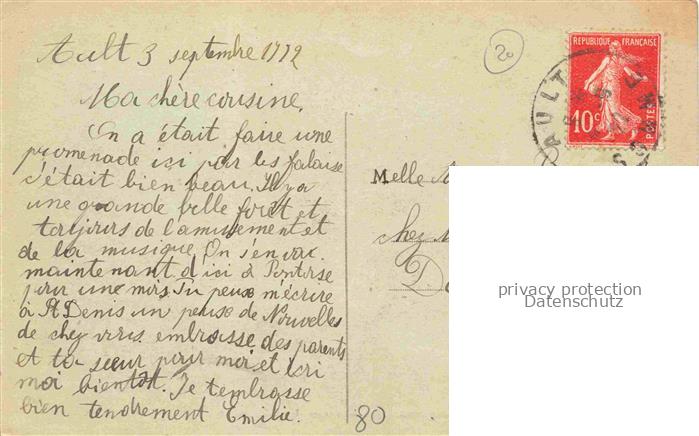 Ault 3 septembre 1912
20
REPUBLIQUE FRANÇAISE
10c
POSTES
AULT
Ma chère cousine,
On a était faire une
promenade ici par les falaise
s'était bien beau. Il y a
une grande belle forêt et
toujours de l'amusement et
de la musique On s'en va
maintenant d'ici à Pontoise
pour une mois Tu peux m'écrire
à St Denis un peuse de Nouvelles
de chez vous embrasse des parents
et ta sœur pour moi et écri
moi bientôt. Je t'embrasse
bien tendrement Emilie.
Melle
chez
80
privacy protection
Datenschutz